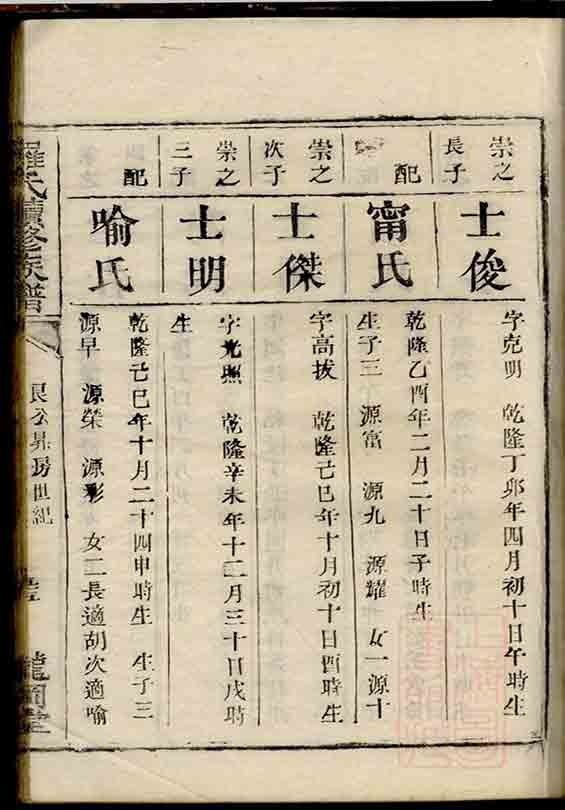 崇之
長子
士俊
字克明　乾隆丁卯年四月初十日午時生
配
甯氏
乾隆乙酉年二月二十日子時生
生子三　源富　源九　源耀　女一源十
崇之
次子
士傑
字高拔　乾隆己巳年十月初十日酉時生
崇之
三子
士明
字光照　乾隆辛未年十二月三十日戌時
生
配
喻氏
乾隆己巳年十月二十四申時生　生子三
源早　源榮　源彩　女二長適胡次適喻
羅氏續修族譜
良公昇房世紀